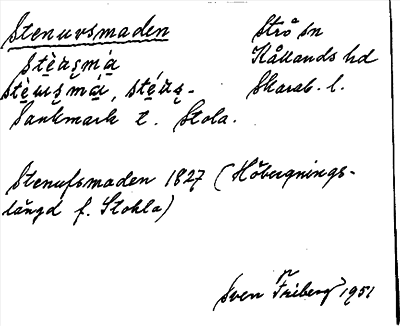 Stenuvsmaden Strö sn
Kållands hd
Skarab. l.
Sankmark t. Stola.
Stenufsmaden 1827 (Höbergnings-
längd f. Stohla)
Sven Friberg 1951